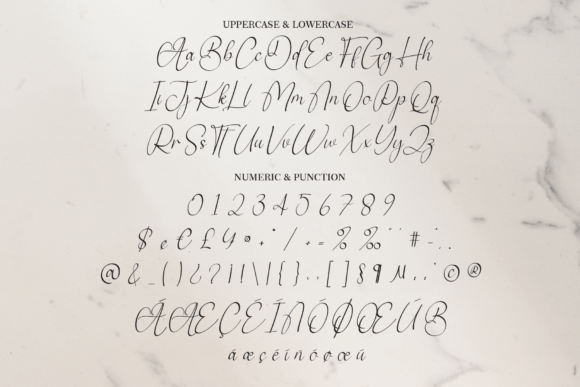 UPPERCASE & LOWERCASE
Aa Bb Cc Dd Ee Ff Gg Hh
Ii Jj Kk Ll Mm Nn Oo Pp Qq
Rr Ss Tt Uu Vv Ww Xx Yy Zz
NUMERIC & PUNCTION
0 1 2 3 4 5 6 7 8 9
$ ¢ € £ % ‰ #
@ & _ ( ) ¿ ? ¡ ! \ | { } [ ] § ¶ © ®
Á Æ Ç É Í Ñ Ó Ø Œ Ú
á æ ç é í ñ ó ø œ ú